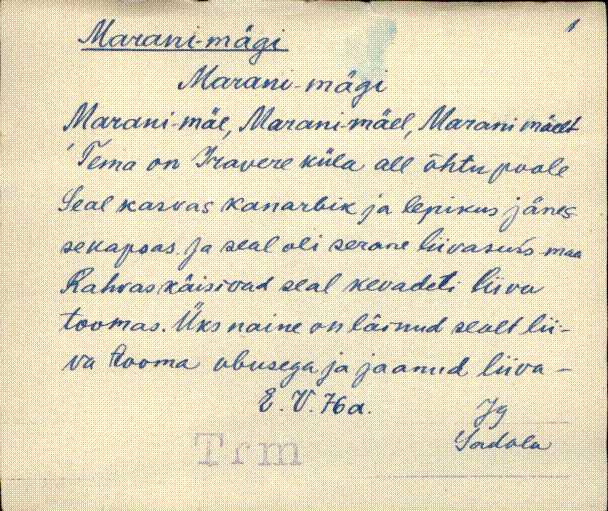 1
Marani-mägi
Marani-mägi
Marani-mäe, Marani-mäel, Marani mäelt
Tema on Iravere küla all õhtu poole
Seal kasvas kanarbik ja lepikus jänes
sekapsas. Ja seal oli serane liivasuis maa
Rahvas käisivad seal kevadeti liiva
toomas. Üks naine on läinud sealt lii-
va tooma obusega ja jaanud liiva –
E. V. 76 a.
Jg
Sadala
Trm